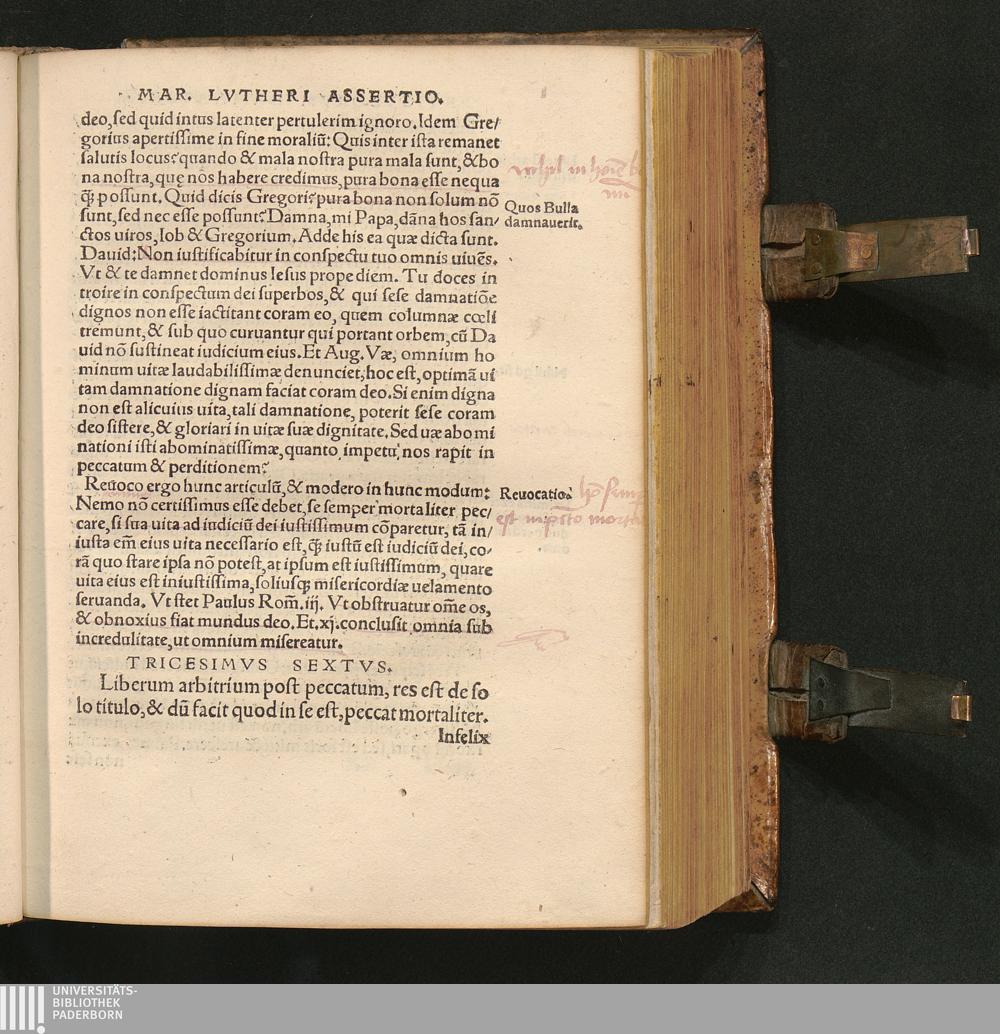 MAR. LVTHERI ASSERTIO.
deo, sed quid intus latenter pertulerim ignoro. Idem Gre/
gorius apertissime in fine moraliũ: Quis inter ista remanet
salutis locus? quando & mala nostra pura mala sunt, & bo
na nostra, quę nos habere credimus, pura bona esse nequa
q̃ possunt. Quid dicis Gregori? pura bona non solum nõ
sunt, sed nec esse possunt? Damna, mi Papa, dãna hos san/
ctos uiros, Iob & Gregorium. Adde his ea quæ dicta sunt.
Quos Bulla
damnauerit.
Dauid: Non iustificabitur in conspectu tuo omnis uiuẽs.
Vt & te damnet dominus Iesus prope diem. Tu doces in
troire in conspectum dei superbos, & qui sese damnatiõe
dignos non esse iactitant coram eo, quem columnæ cœli
tremunt, & sub quo curuantur qui portant orbem, cũ Da
uid nõ sustineat iudicium eius. Et Aug. Væ, omnium ho
minum uitæ laudabilissimæ denunciet, hoc est, optimã ui
tam damnatione dignam faciat coram deo. Si enim digna
non est alicuius uita, tali damnatione, poterit sese coram
deo sistere, & gloriari in uitæ suæ dignitate. Sed uæ abomi
nationi isti abominatissimæ, quanto impetu, nos rapit in
peccatum & perditionem?
Reuoco ergo hunc articulũ, & modero in hunc modum:
Reuocatio
Nemo nõ certissimus esse debet, se semper mortaliter pec/
care, si sua uita ad iudiciũ dei iustissimum cõparetur, tã in/
iusta em̃ eius uita necessario est, q̃ iustũ est iudiciũ dei, co-
rã quo stare ipsa nõ potest, at ipsum est iustissimum, quare
uita eius est iniustissima, soliusq; misericordiæ uelamento
seruanda. Vt stet Paulus Rom̃. iij. Vt obstruatur om̃e os,
& obnoxius fiat mundus deo. Et. xj. conclusit omnia sub
incredulitate, ut omnium misereatur.
TRICESIMVS SEXTVS.
Liberum arbitrium post peccatum, res est de so
lo titulo, & dũ facit quod in se est, peccat mortaliter.
Infelix
UNIVERSITÄTS-
BIBLIOTHEK
PADERBORN